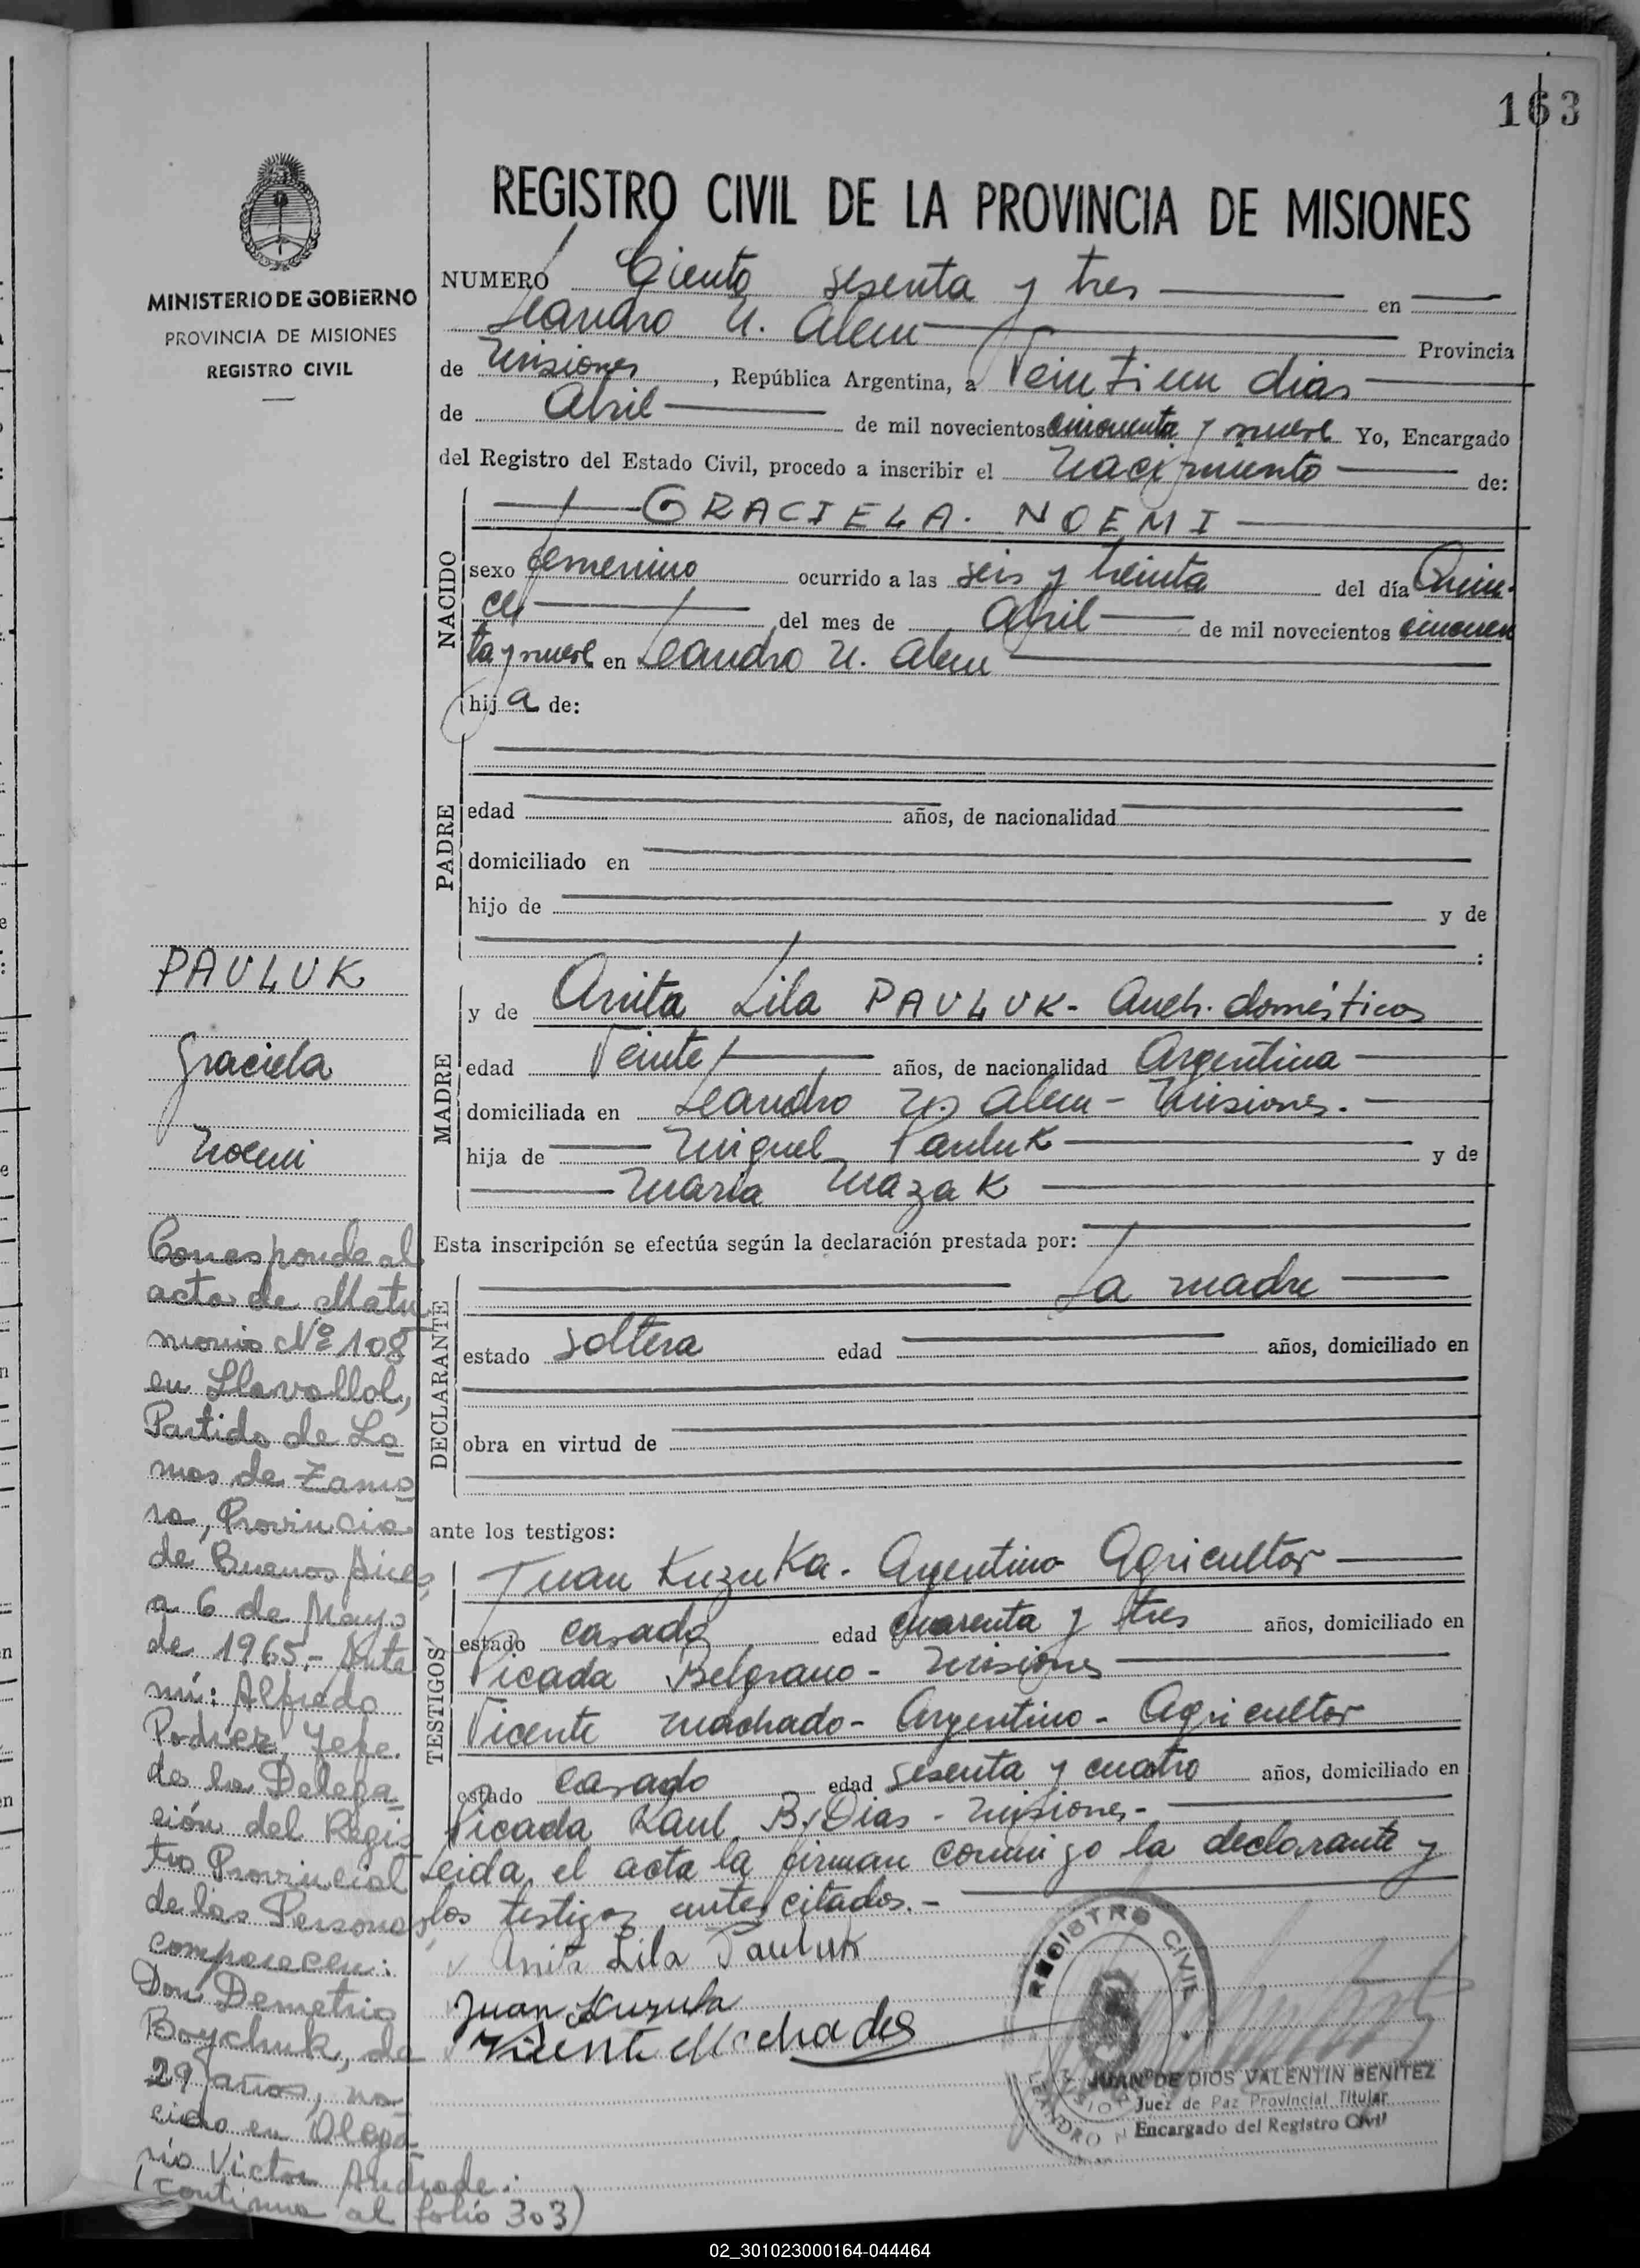 163
MINISTERIO DE GOBIERNO
PROVINCIA DE MISIONES
REGISTRO CIVIL
REGISTRO CIVIL DE LA PROVINCIA DE MISIONES
NUMERO Ciento sesenta y tres en
Leandro N. Alem Provincia
de Misiones, República Argentina, a Veintiun dias
de Abril de mil novecientos cincuenta y nueve Yo, Encargado
del Registro del Estado Civil, procedo a inscribir el Nacimiento de:
NACIDO
GRACIELA. NOEMI
sexo femenino ocurrido a las seis y treinta del día Quin-
ce del mes de Abril de mil novecientos cincuen
ta y nueve en Leandro N. Alem
hija de:
PADRE
edad años, de nacionalidad
domiciliado en
hijo de y de
:
MADRE
y de Anita Lila PAULUK- Queh. domésticos
edad Veinte años, de nacionalidad Argentina
domiciliada en Leandro N. Alem - Misiones.
hija de Miguel Pauluk y de
Maria Mazak
Esta inscripción se efectúa según la declaración prestada por:
DECLARANTE
La madre
estado soltera edad años, domiciliado en
obra en virtud de
ante los testigos:
TESTIGOS
Juan Kuzuka. Argentino Agricultor
estado casado edad cuarenta y tres años, domiciliado en
Picada Belgrano - Misiones
Vicente Machado - Argentino - Agricultor
estado casado edad sesenta y cuatro años, domiciliado en
Picada Raul B. Dias - Misiones.-
Leida, el acta la firman conmigo la declarante y
los testigos antes citados.-
Anita Lila Pauluk
Juan Kuzuka
REGISTRO CIVIL
MISIONES
LEANDRO N
JUAN DE DIOS VALENTIN BENITEZ
Juez de Paz Provincial Titular
Encargado del Registro Civil
PAULUK
Graciela
Noemi
Corresponde al
acta de Matri
monio Nº 108
en Llavallol,
Partido de Lo
mas de Zamo
ra, Provincia
de Buenos Aires,
a 6 de Mayo
de 1965.- Ante
mí: Alfredo
Podrez, Jefe
de la Delega
ción del Regis
tro Provincial
de las Personas,
comparecen:
Don Demetrio
Boychuk, de
29 años, na-
cido en Olega
rio Victor Andrade.
(continua al folio 303)
02_301023000164-044464